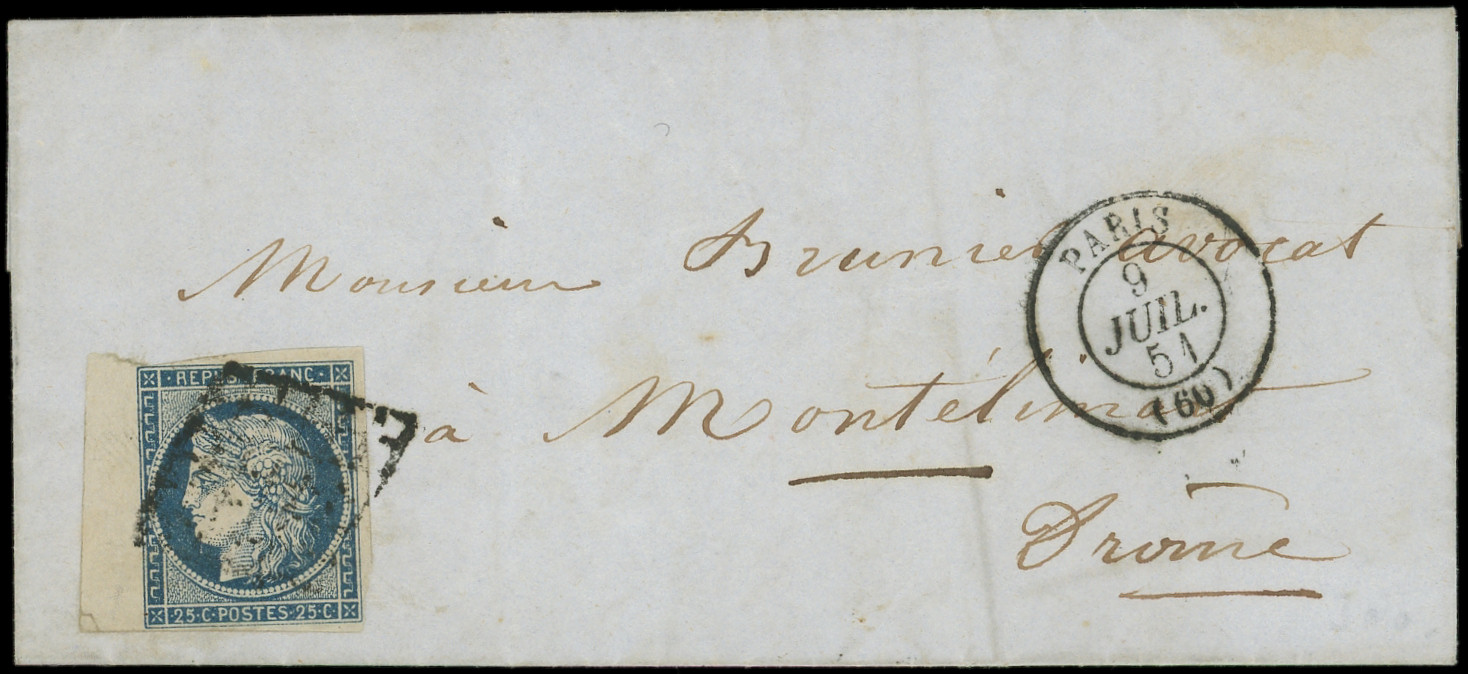 Monsieur Brunier avocat
à Montélimar
Drome
PARIS
9
JUIL.
51
(60)
REPUB. FRANC.
25·C·POSTES·25·C·